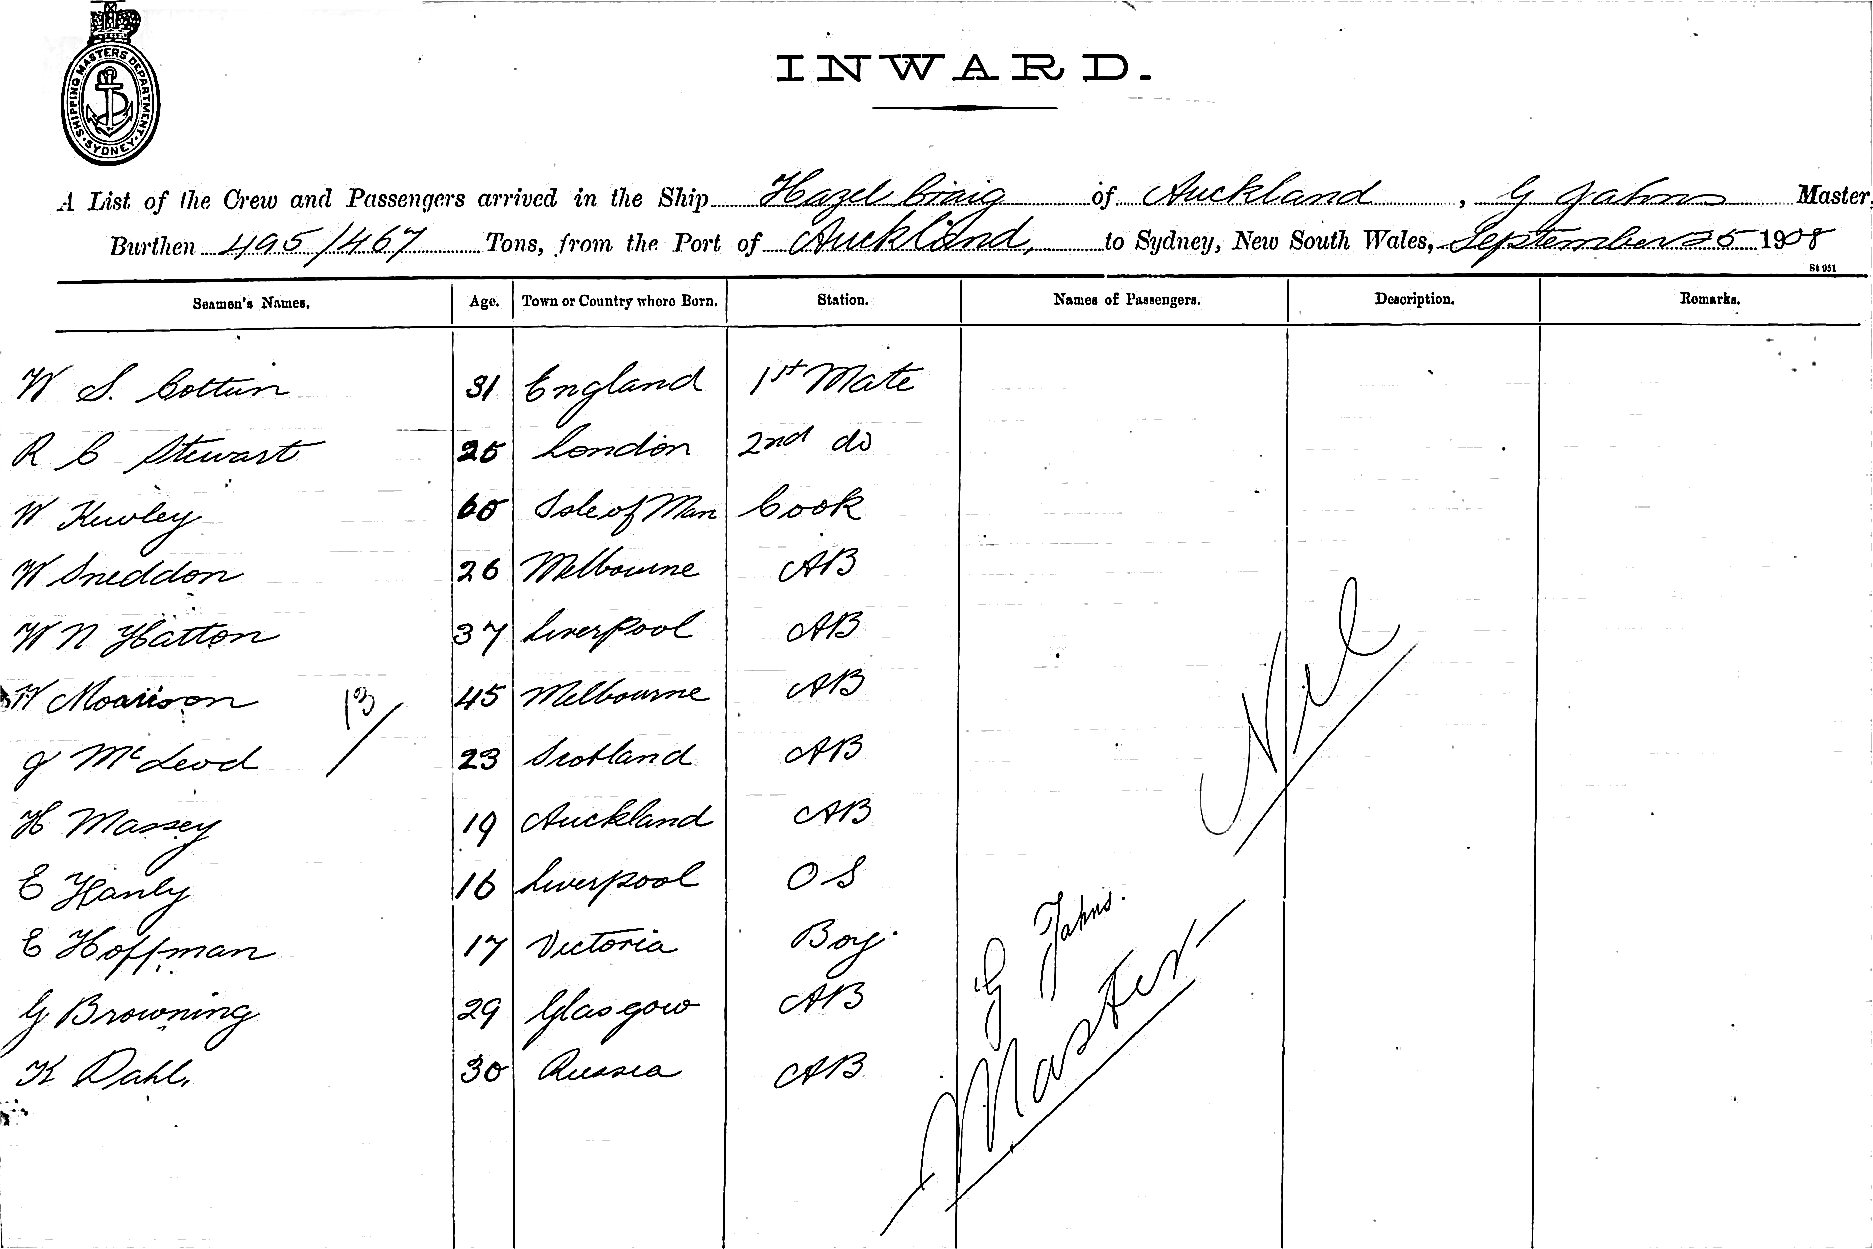 SHIPPING MASTERS DEPARTMENT. SYDNEY
INWARD.
A List of the Crew and Passengers arrived in the Ship Hazel Craig of Auckland, G Jahns Master,
Burthen 495/467 Tons, from the Port of Auckland, to Sydney, New South Wales, September 25 1908
St 951
Seamen's Names. Age. Town or Country where Born. Station. Names of Passengers. Description. Remarks.
W S. 31 England 1st Mate
R C Stewart 25 London 2nd do
W Kewley 60 Isle of Man Cook
W Sneddon 26 Melbourne AB
W N Hatton 37 Liverpool AB
W Morrison 45 Melbourne AB
13/
J McLeod 23 Scotland AB
H Massey 19 Auckland AB
E Hanly 16 Liverpool O S
E Hoffman 17 Victoria Boy.
G Browning 29 Glasgow AB
K Dahl. 30 Russia AB
Nil
G Jahns.
Master